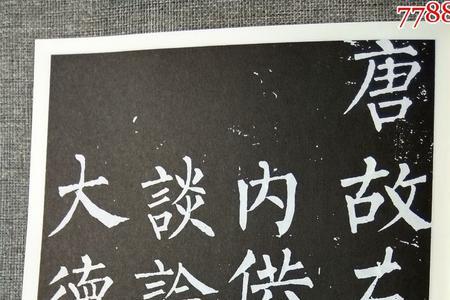 7788
唐故左
内供
談論
大德